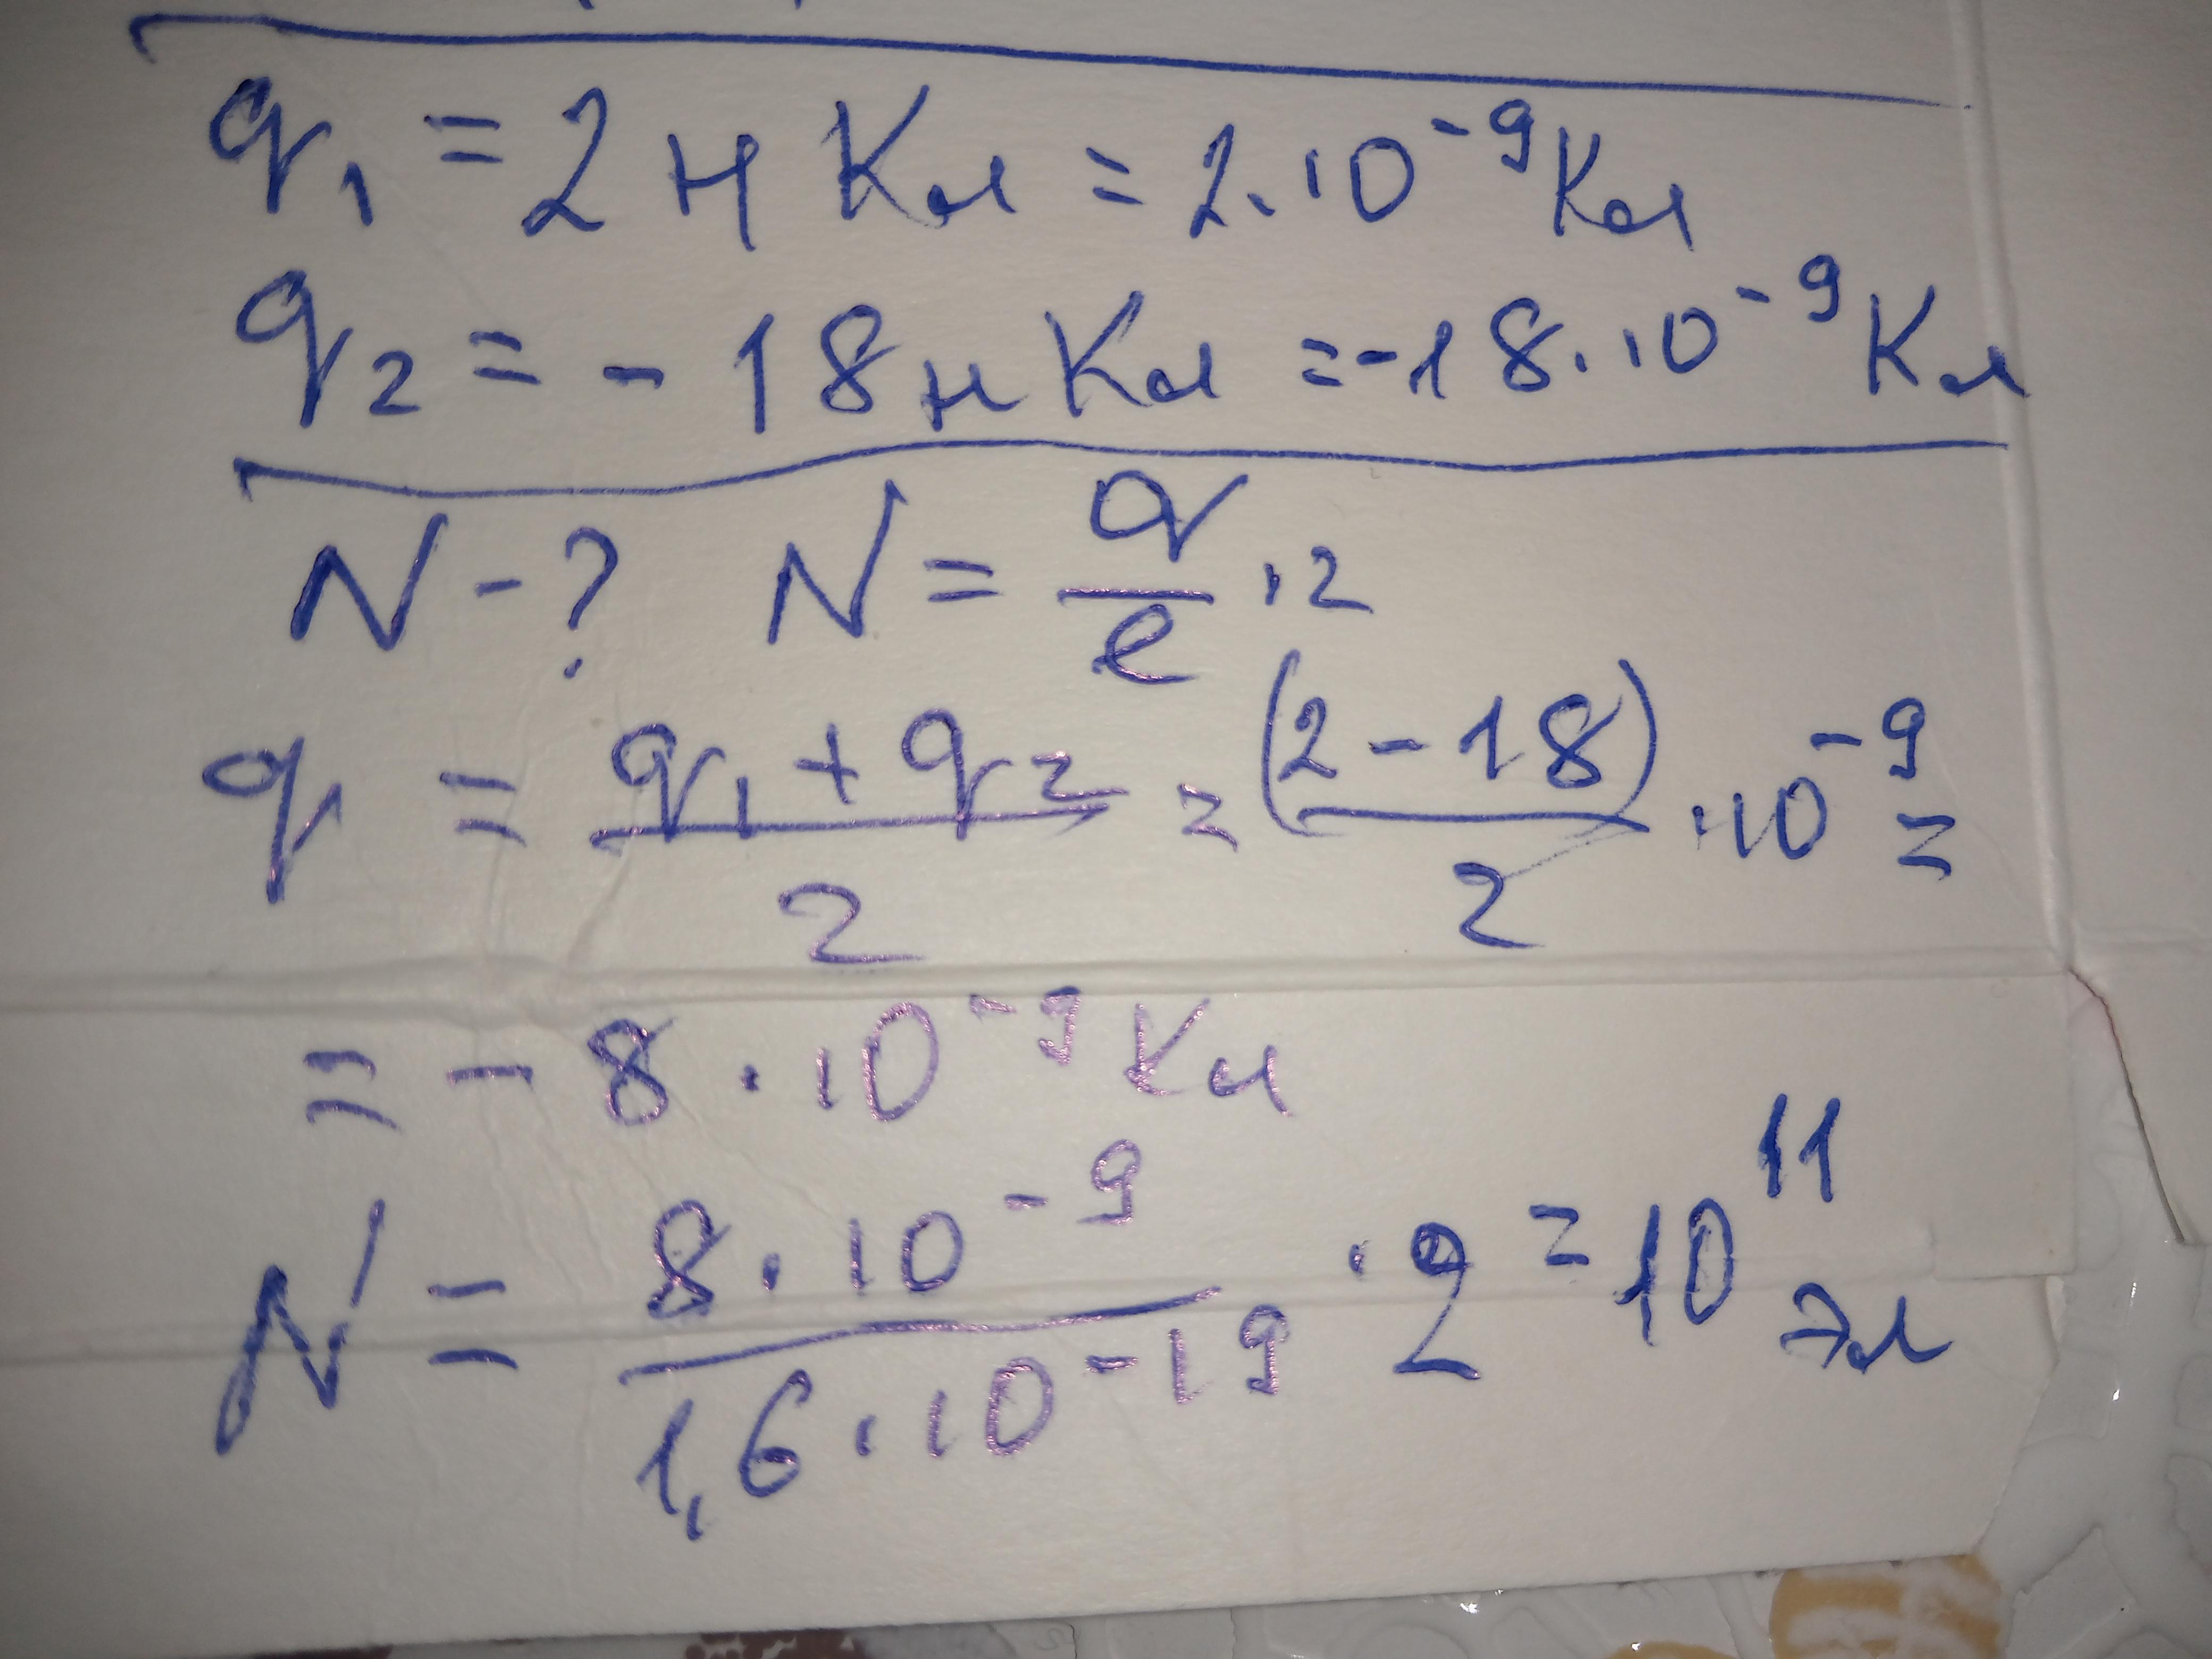 q₁ = 2 нКл = 2·10⁻⁹ Кл
q₂ = - 18 нКл = -18·10⁻⁹ Кл
N - ? N = q/e ·2
q = (q₁ + q₂)/2 = (2 - 18)/2 ·10⁻⁹ =
= - 8 · 10⁻⁹ Кл
N = 8·10⁻⁹/1,6·10⁻¹⁹ · 2 = 10¹¹ эл